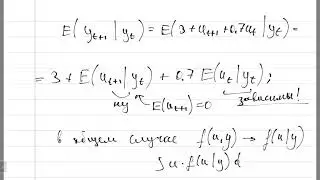 E(y_{t+1}|y_t) = E(3+u_{t+1}+0.7u_t|y_t) =
= 3 + E(u_{t+1}|y_t) + 0.7 E(u_t|y_t);
E(u_{t+1})=0 зависимы!
в общем случае f(u,y) → f(u|y)
∫u·f(u|y)d